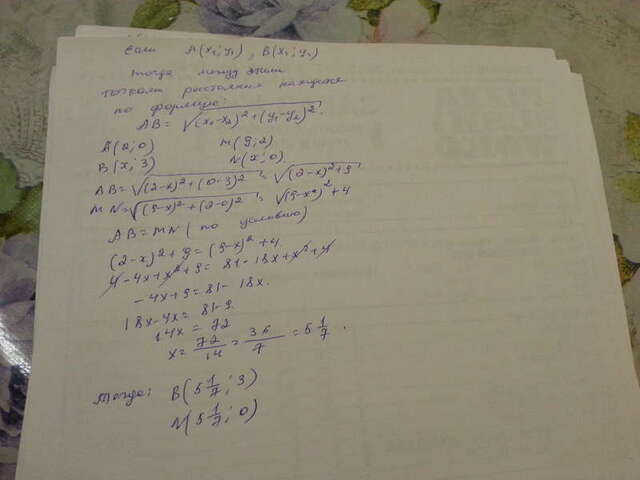 Если A(x₁; y₁), B(x₂; y₂)
тогда между этими
точками расстояние находится
по формуле:
AB = √(x₁-x₂)²+(y₁-y₂)².
A(2;0) M(9;2)
B(x;3) N(x;0)
AB=√(2-x)²+(0-3)² = √(2-x)²+9
MN=√(9-x)²+(2-0)² = √(9-x)²+4
AB=MN (по условию)
(2-x)²+9=(9-x)²+4.
4-4x+x²+9=81-18x+x²+4
-4x+9=81-18x.
18x-4x=81-9.
14x=72
x=72/14=36/7=5 1/7.
Тогда: B(5 1/7; 3)
N(5 1/7; 0)